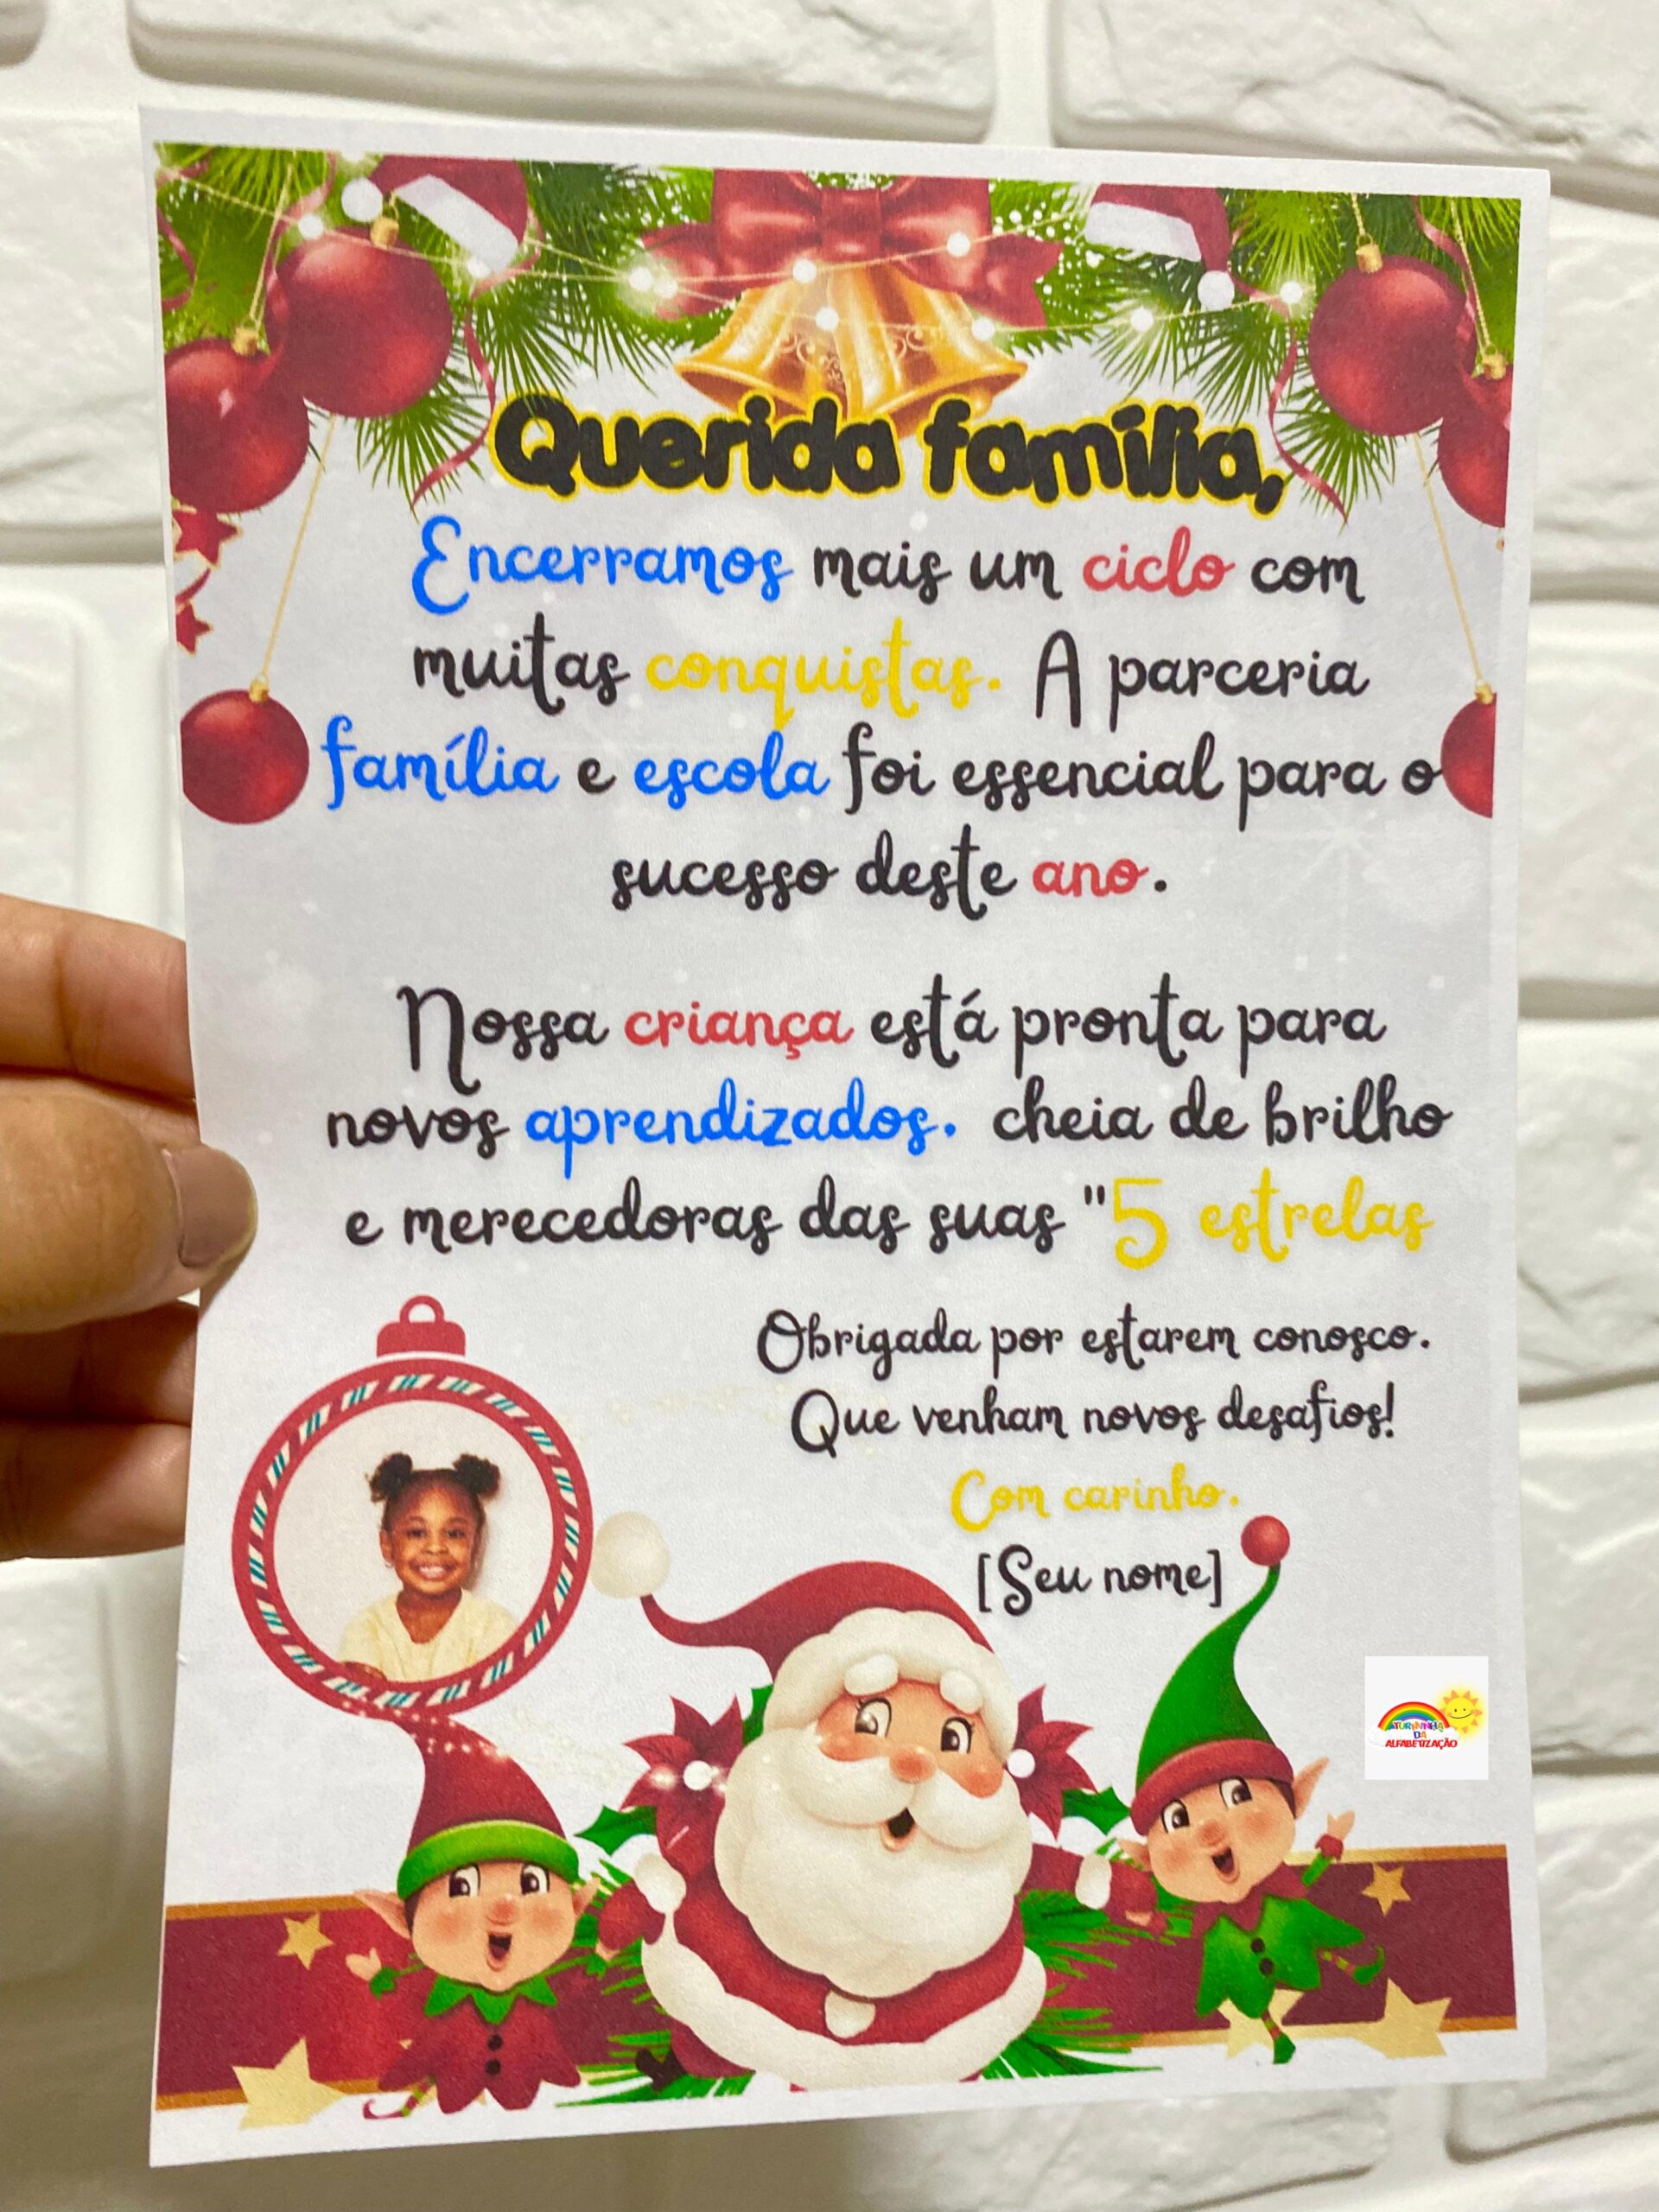 Querida família,
Encerramos mais um ciclo com
muitas conquistas. A parceria
família e escola foi essencial para o
sucesso deste ano.
Nossa criança está pronta para
novos aprendizados. cheia de brilho
e merecedoras das suas "5 estrelas
Obrigada por estarem conosco.
Que venham novos desafios!
Com carinho.
[Seu nome]
TURMINHA
DA
ALFABETIZAÇÃO